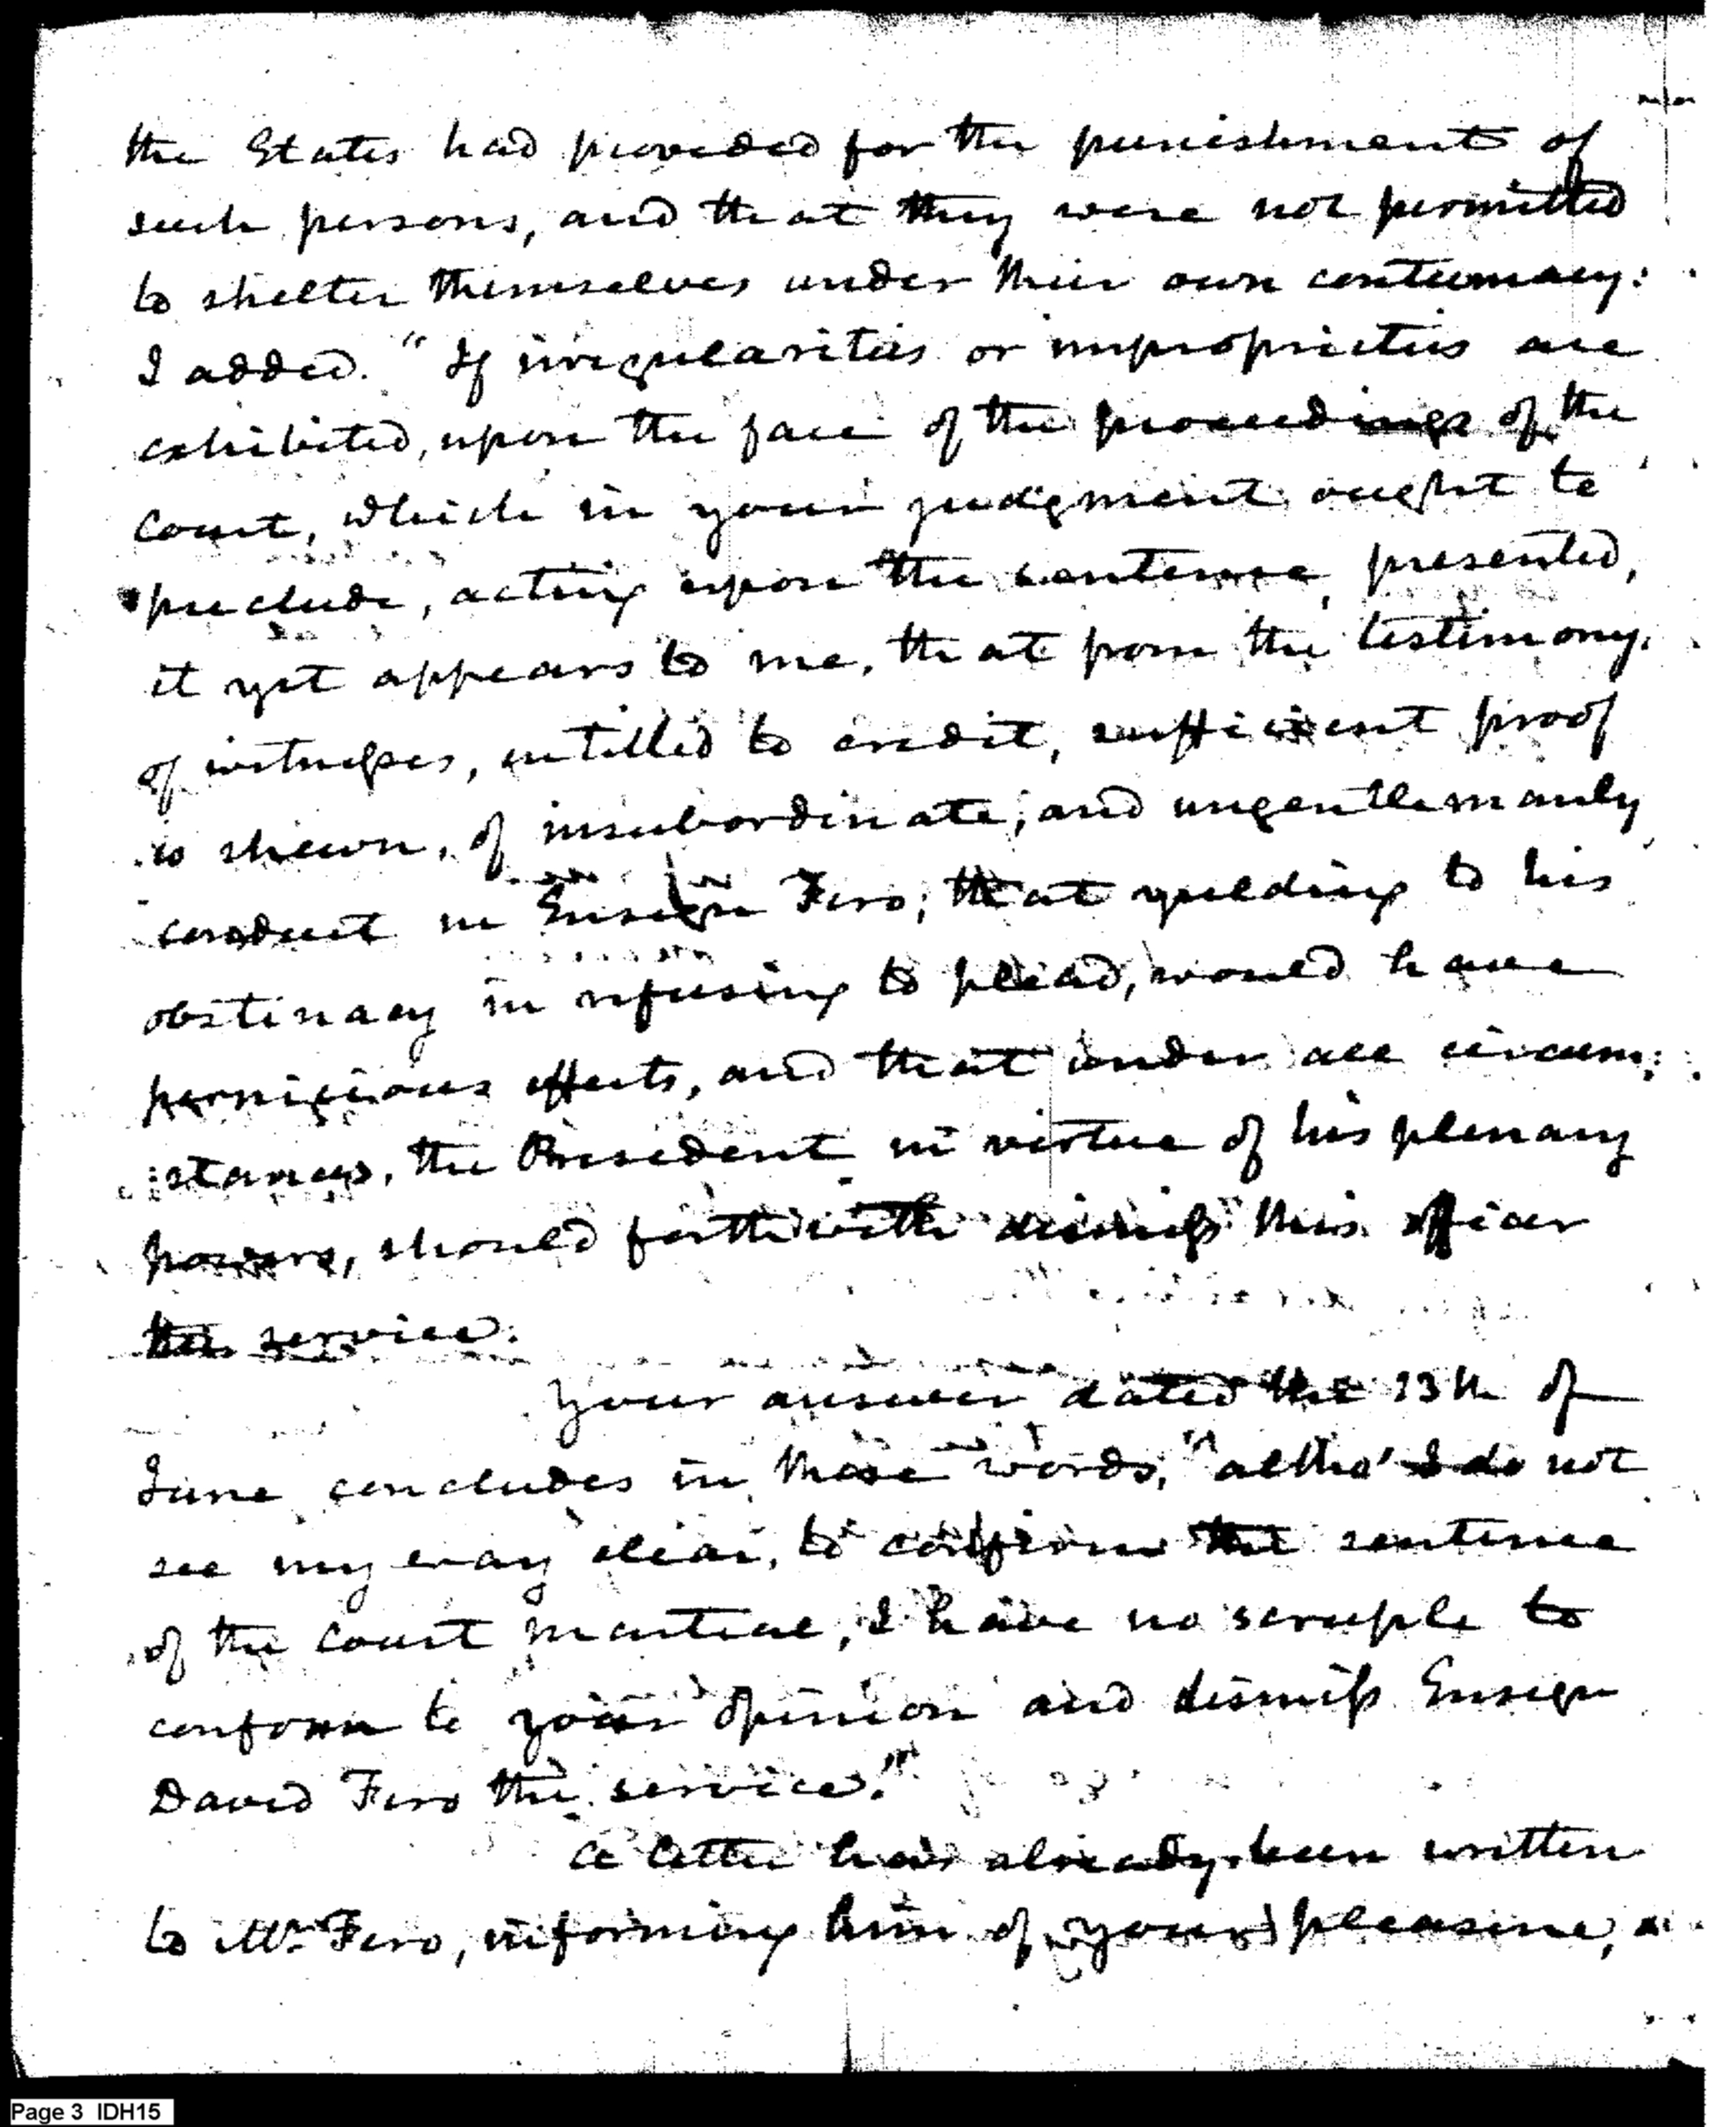 the States had provided for the punishment of
such persons, and that they were not permitted
to shelter themselves under their own contumacy:
I added. "If irregularities or improprieties are
exhibited, upon the face of the proceedings of the
court, which in your judgment ought to
preclude, acting upon the sentence, presented,
it yet appears to me, that from the testimony,
of witnesses, intitled to credit, sufficient proof
is shewn, of insubordinate, and ungentlemanly
conduct in Ensign Fero; that yielding to his
obstinacy in refusing to plead, would have
pernicious effects, and that under all circum:
:stances, the President in virtue of his plenary
powers, should forthwith dismiss this officer
the service.
Your answer dated the 13th of
June concludes in these words, "altho' I do not
see my way clear, to confirm the sentence
of the court martial, I have no scruple to
conform to your opinion and dismiss Ensign
David Fero the service."
A letter has already been written
to Mr. Fero, informing him of your pleasure,
Page 3 IDH15